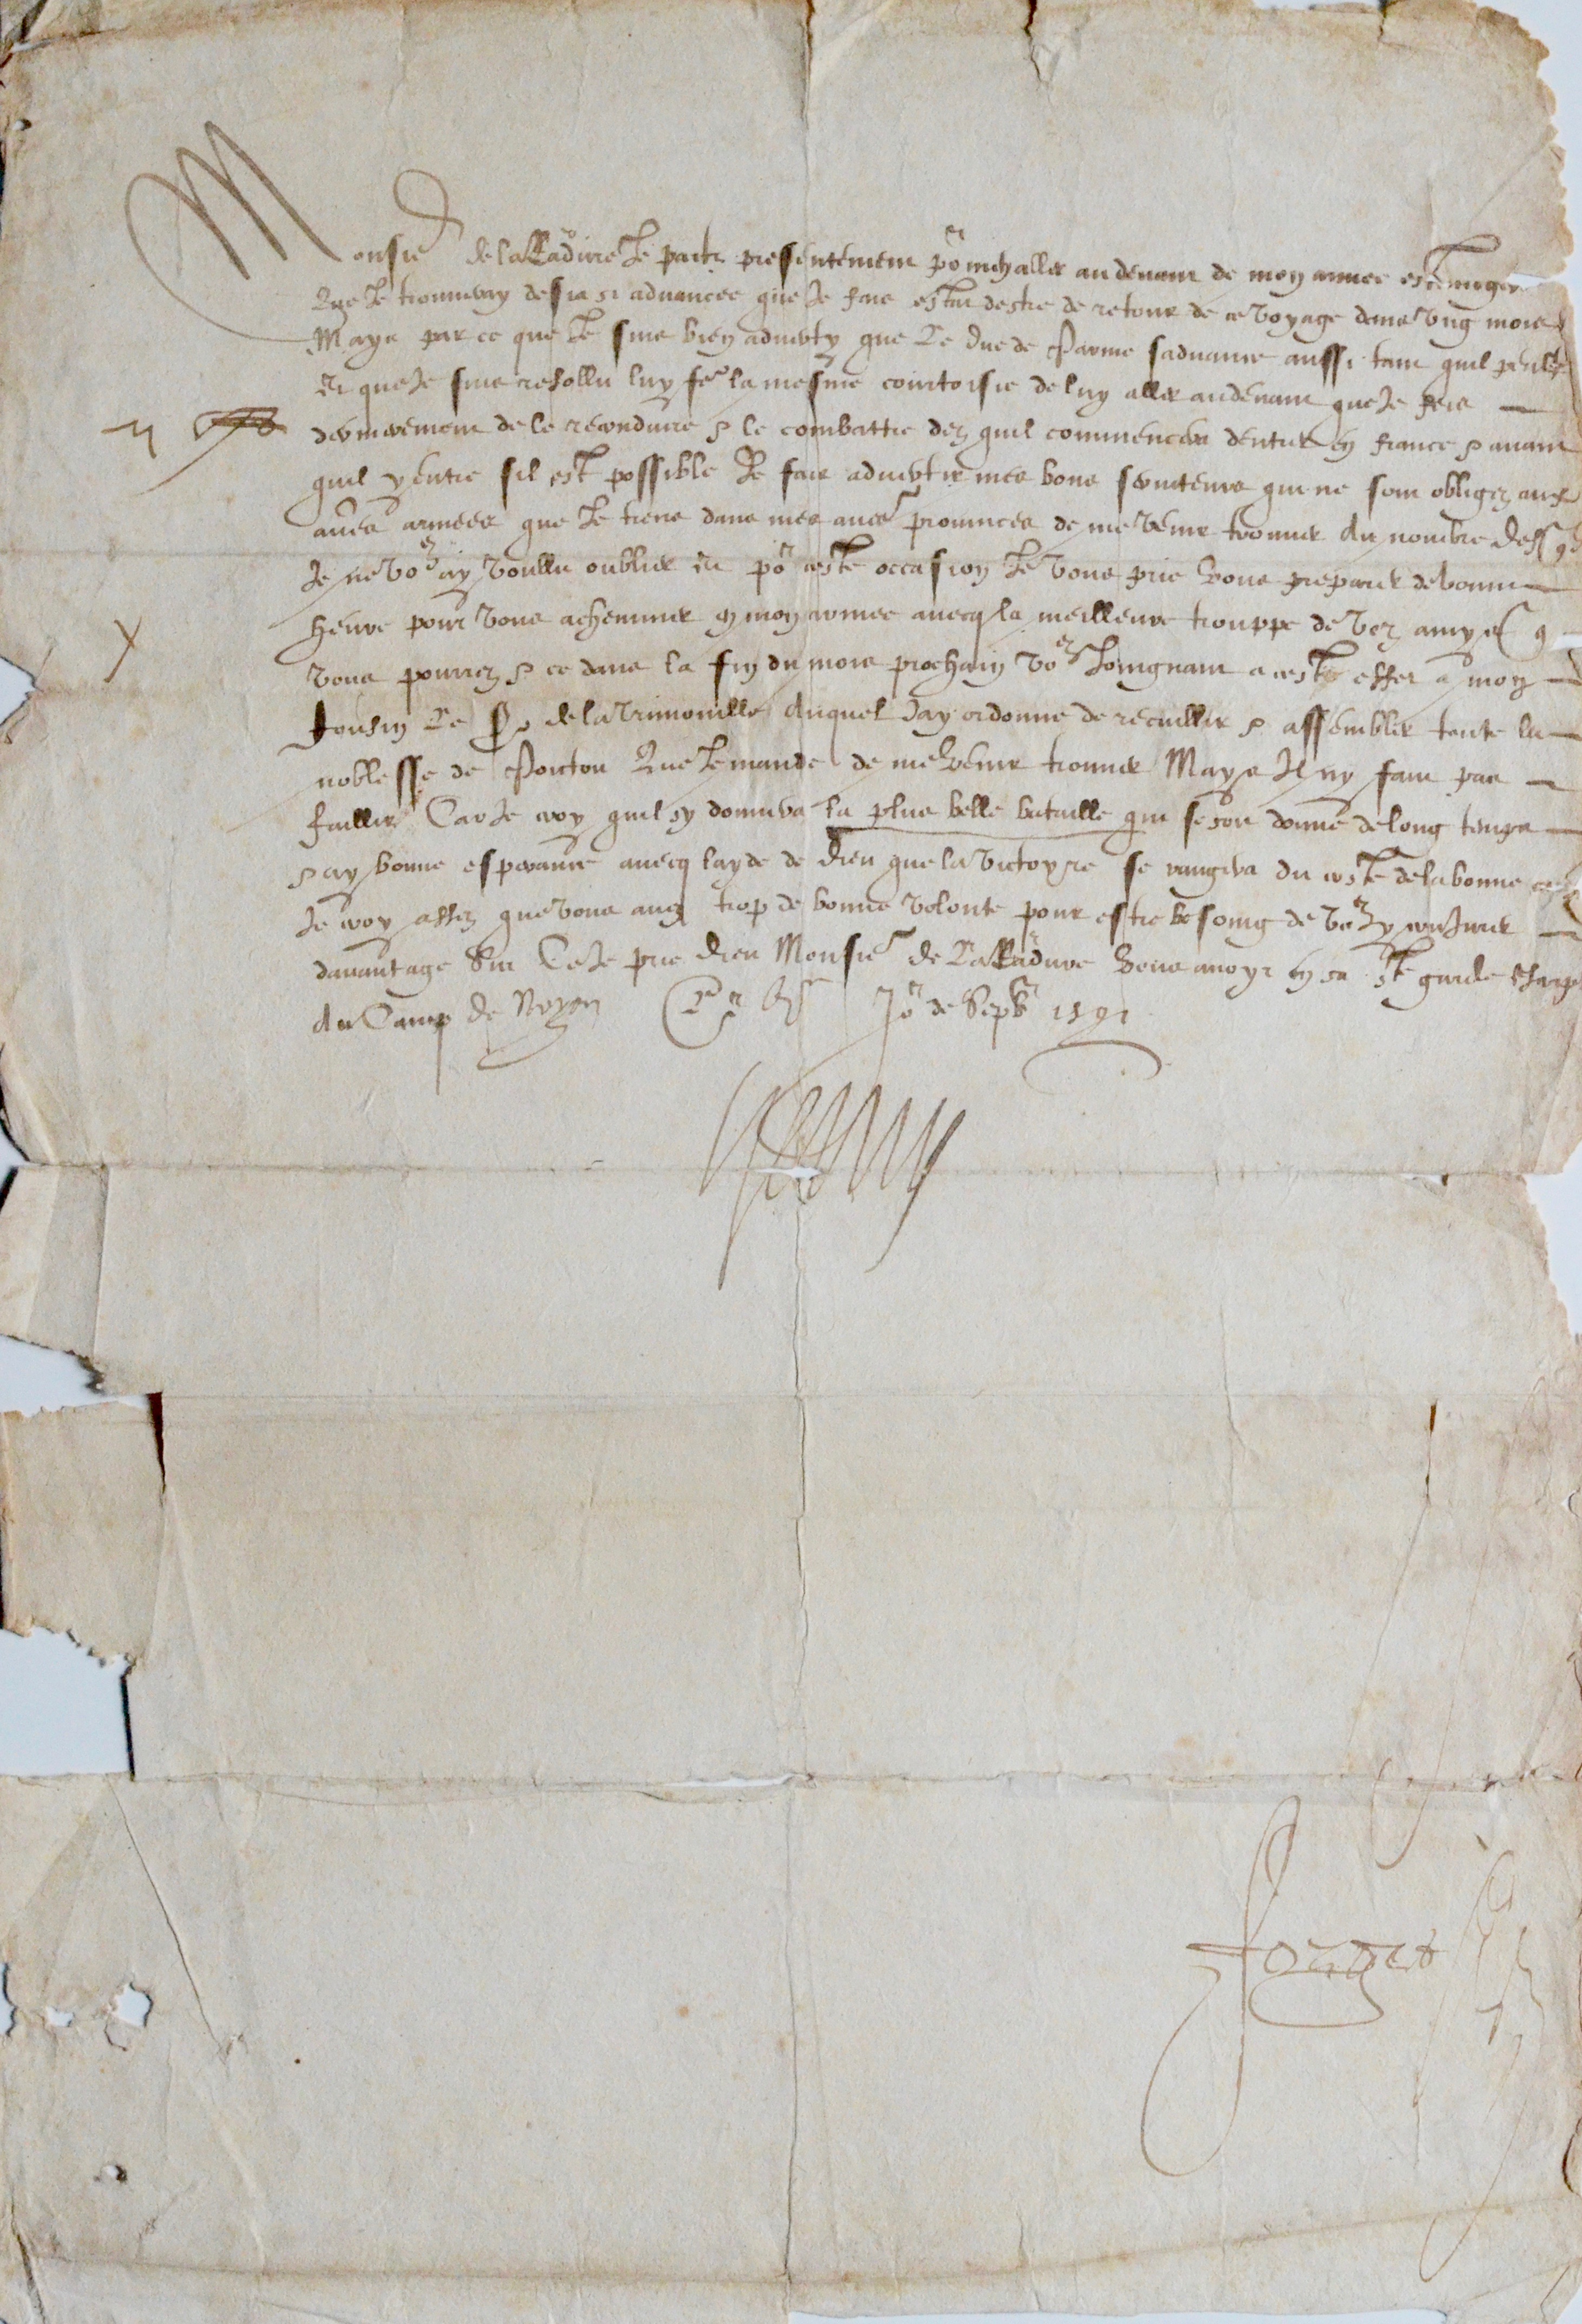 Monsieʳ de la Ꝃadure Je parts presentement poʳ mẽ aller au devant de mon armee estrangere
Que Je trouveray desia si advancee que Je fais estat destre de retour de ce voyage dans ung mois
Mays par ce que Je suis bien adverty que Le Duc de Parme sadvance aussi tant quil peult
Et que Je suis resollu luy feʳ la mesme courtoisie de luy aller au devant que Je feis
dernierement de le reconduire & le combattre dez quil commencera dentrer en france & avant
quil y entre sil est possible Je fais advertir mes bons serviteurs qui ne sont obligez aux
aũes armees que Je tiens dans mes auẽs provinces de me venir trouver du nombre desqͩ
Je ne voˢ ay voullu oublier Et poʳ ceste occasion Je vous prie vous preparer de bonne
heure pour vous acheminer en mon armee avecq la meilleure trouppe de voz amys q
vous pourrez & ce dans la fin du mois prochain voˢ Joingnant a cest effet a mon
Cousin Le Sʳ de la Trimouille Auquel Jay ordonne de recuillir & assembler toute la
noblesse de Poictou Que Je mande de me venir trouver Mays Il ny faut pas
faillir Car Je croy quil sy donnera la plus belle bataille qui se soit donnee de long temps
& ay bonne esperance avecq layde de Dieu que la victoyre se rangera du coste de la bonne
Je croy assez que vous avez trop de bonne volonte pour estre besoing de voˢ y conjurer
davantage Sur Ce Je prie Dieu Monsieʳ de La Ꝃadure vous avoyr en sa sᵗᵉ garde
du Camp de Noyon Ce Joʳ de Sepbʳ 1591
Henry
forget